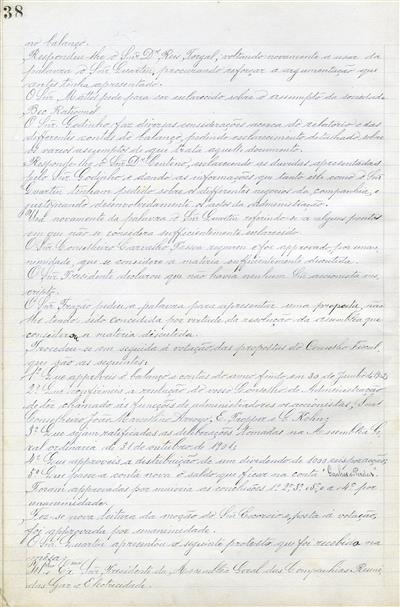 38
no balanço.
Respondeu-lhe o Snr. Dr. Reis Torgal, voltando novamente a usar da
palavra o Snr. Quartin, procurando reforçar a argumentação que
antes tinha apresentado.
O Snr. Mattel pede para ser esclarecido sobre o assumpto da sociedade
O Snr. Godinho faz diversas considerações acerca do relatorio e das
differentes contas do balanço, pedindo esclarecimento detalhado sobre
os varios assumptos de que trata aquelle documento.
Responde-lhe o Snr. Dr. Centeno, esclarecendo as duvidas apresentadas
pelo Snr. Godinho e dando as informações que tanto elle como o Snr.
Quartin tinham pedido sobre os differentes negocios da companhia, e
justificando desenvolvidamente os actos da administração.
Usa novamente da palavra o Snr. Quartin referindo-se a alguns pontos
em que não se considera sufficientemente esclarecido.
O Snr. Conselheiro Carvalho Pessoa requereu e foi approvado, por una-
nimidade, que se considere a materia sufficientemente discutida.
O Snr. Presidente declarou que não havia nenhum Snr. accionista ins-
cripto.
O Snr. Frazão pediu a palavra para apresentar uma proposta, não
lhe tendo sido concedida por virtude da resolução da assemblea que
considerou a materia discutida.
Procedeu-se em seguida á votação das propostas do Conselho Fiscal,
que são as seguintes:
1ª Que approveis o balanço e contas do anno findo em 30 de Junho de
2ª Que confirmeis a resolução do vosso Conselho de Administração
de ter chamado ás funcções de administradores os accionistas, Snrs.
Conselheiro João E. Propper e L. Kohn;
3ª Que sejam ratificadas as deliberações tomadas na Assemblea Ge-
ral ordinaria de 31 de outubro de 1904;
4ª Que approveis a distribuição de um dividendo de
5ª Que passe a conta nova o saldo que fica na conta
Foram approvadas por maioria as conclusões 1ª, 2ª, 3ª e 5ª, e a 4ª por
unanimidade.
Fez-se nova leitura da moção do Snr. e, posta á votação,
foi approvada por unanimidade.
O Snr. Quartin apresentou o seguinte protesto que foi recebido na
mesa:
Illmo. Exmo. Snr. Presidente da Assemblea Geral das Companhias Reuni-
das Gaz e Electricidade.